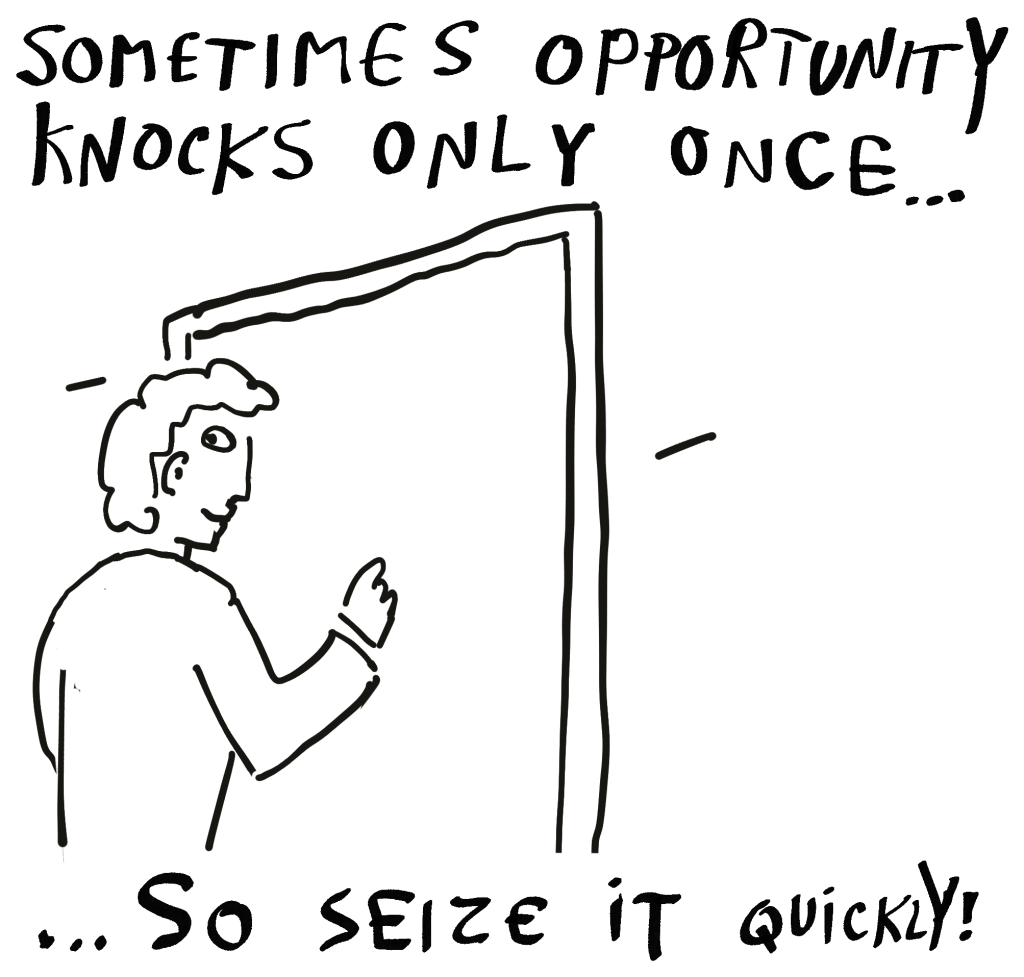 SOMETIMES OPPORTUNITY
KNOCKS ONLY ONCE...
...SO SEIZE iT QUiCKLY!